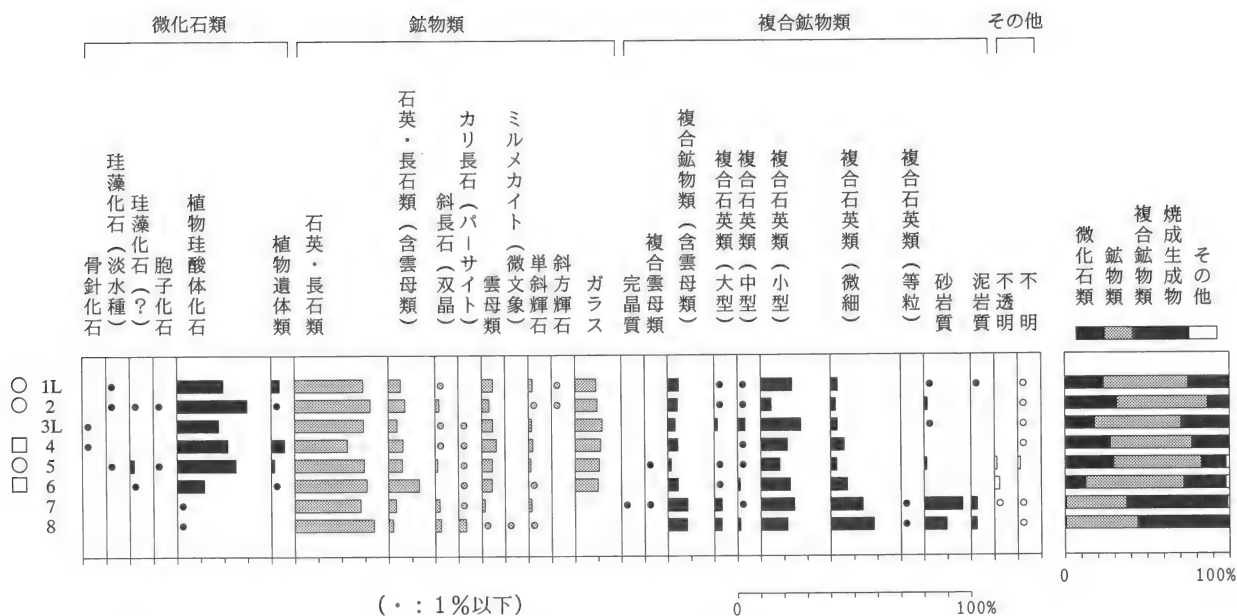 微化石類
鉱物類
複合鉱物類
その他
骨針化石
珪藻化石(淡水種)
珪藻化石(?)
胞子化石
植物珪酸体化石
植物遺体類
石英・長石類
石英・長石類(含雲母類)
斜長石(双晶)
カリ長石(パーサイト)
雲母類
ミルメカイト(微文象)
単斜輝石
斜方輝石
ガラス
完晶質
複合雲母類
複合鉱物類(含雲母類)
複合石英類(大型)
複合石英類(中型)
複合石英類(小型)
複合石英類(微細)
複合石英類(等粒)
砂岩質
泥岩質
不透明
不明
微化石類
鉱物類
複合鉱物類
焼成生成物
その他
○ 1L
○ 2
3L
□ 4
○ 5
□ 6
7
8
(・:1%以下)
0 100%
0 100%